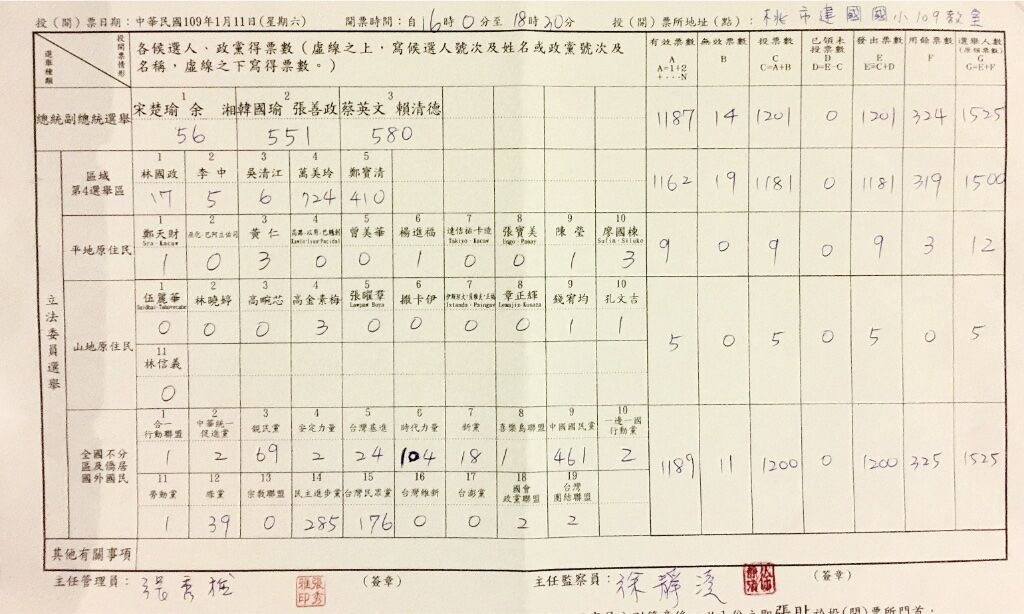 投(開)票日期：中華民國109年1月11日(星期六) 開票時間：自16時0分至18時30分 投(開)票所地址(點)：桃市建國國小109教室
投開票情形 選舉種類 各候選人、政黨得票數(虛線之上，寫候選人號次及姓名或政黨號次及名稱，虛線之下寫得票數。) 有效票數 A A=1+2+····N 無效票數 B 投票數 C C=A+B 已領未投票數 D D=E-C 發出票數 E E=C+D 用餘票數 F 選舉人數 (原領票數) G G=E+F
1 2 3
總統副總統選舉 宋楚瑜 余 湘 韓國瑜 張善政 蔡英文 賴清德
56 551 580 1187 14 1201 0 1201 324 1525
立法委員選舉
區域第4選舉區
1 2 3 4 5
林國政 李中 吳清江 萬美玲 鄭寶清
17 5 6 724 410 1162 19 1181 0 1181 319 1500
平地原住民
1 2 3 4 5 6 7 8 9 10
鄭天財 Sra．Kacaw 黃仁 曾美華 楊進福 達佶祐·卡造 Takiyo．Kacaw 張寶美 Ungo．Panay 陳瑩 廖國棟 Sufin．Siluko
1 0 3 0 0 1 0 0 1 3 9 0 9 0 9 3 12
山地原住民
1 2 3 4 5 6 7 8 9 10
伍麗華 Saidhai．Tahovecahe 林曉婷 高畹芯 高金素梅 張曜羣 撒卡伊 章正輝 錢宥均 孔文吉
0 0 0 3 0 0 0 0 1 1 5 0 5 0 5 0 5
11
林信義
0
全國不分區及僑居國外國民
1 2 3 4 5 6 7 8 9 10
合一行動聯盟 中華統一促進黨 親民黨 安定力量 台灣基進 時代力量 新黨 喜樂島聯盟 中國國民黨 一邊一國行動黨
1 2 69 2 24 104 18 1 461 2 1189 11 1200 0 1200 325 1525
11 12 13 14 15 16 17 18 19
勞動黨 綠黨 宗教聯盟 民主進步黨 台灣民眾黨 台灣維新 台澎黨 國會政黨聯盟 台灣團結聯盟
1 39 0 285 176 0 0 2 2
其他有關事項
主任管理員：張秀雅 張秀雅印 (簽章) 主任監察員：徐靜 (簽章)